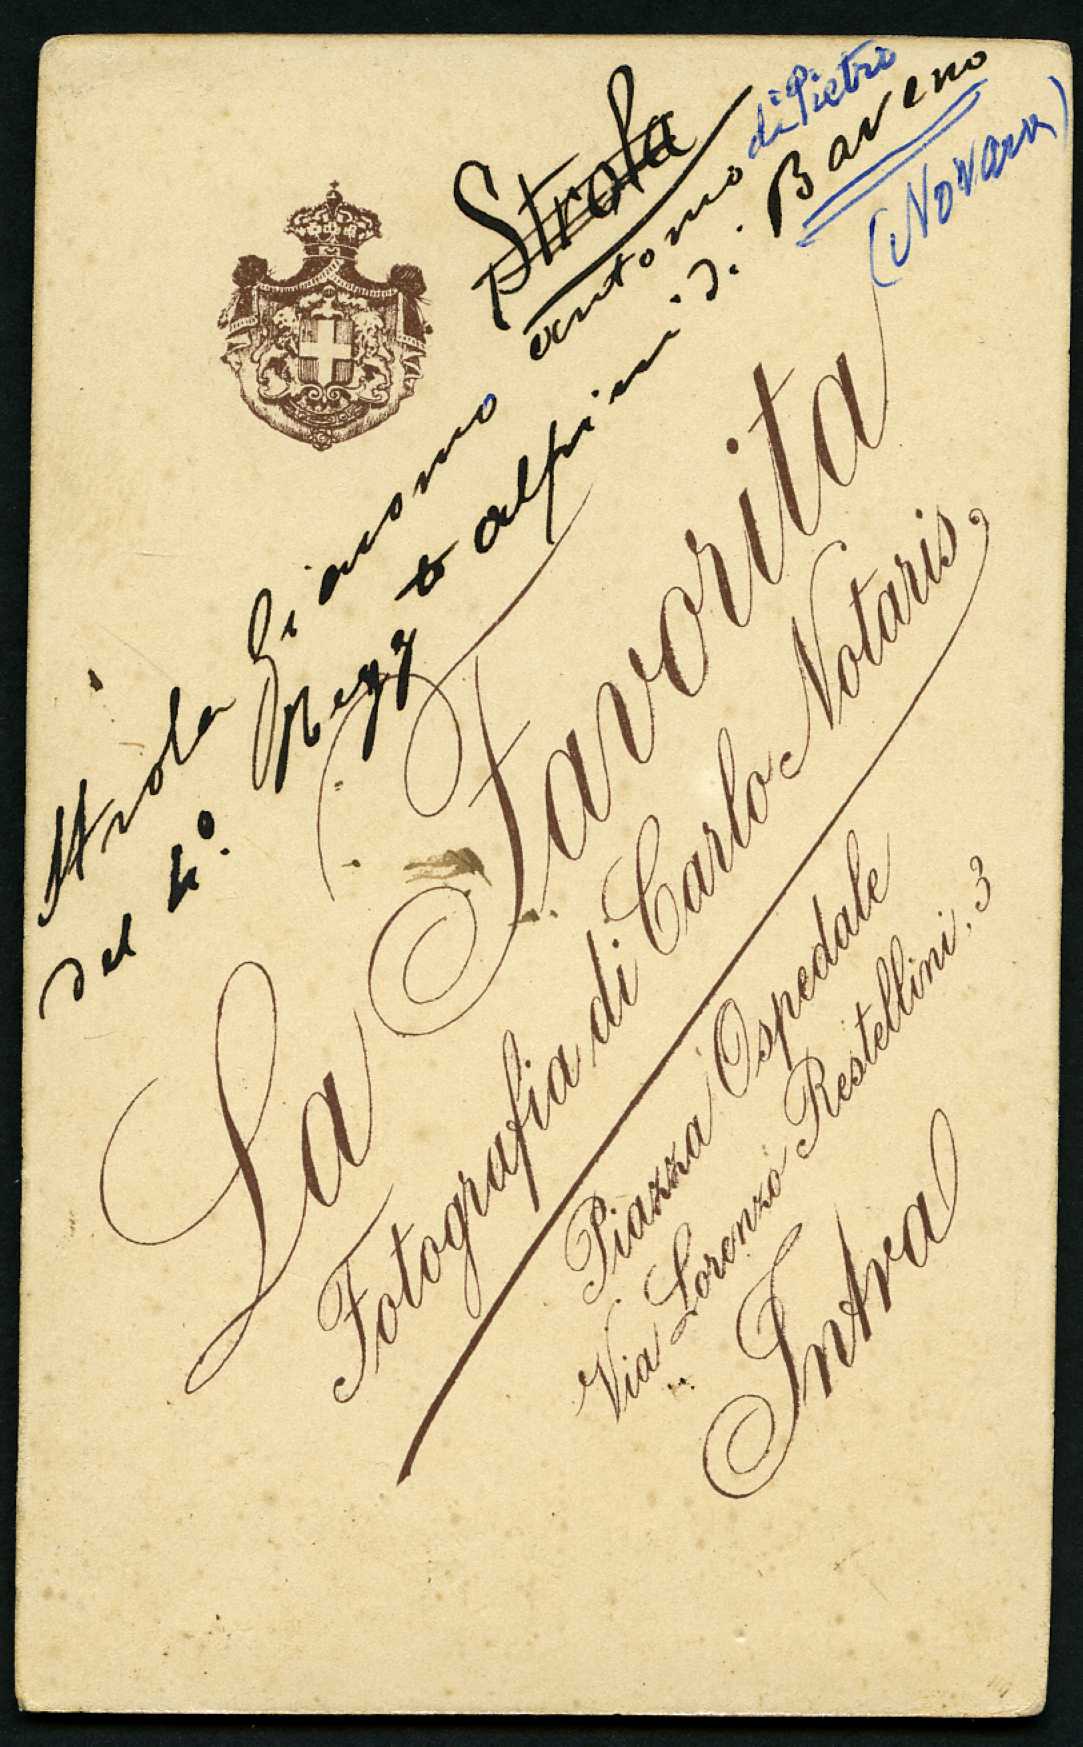 Strola
di Pietro
Strola Giacomo antonio
del 4º. Regg to alpini di Baveno
(Novara)
La Favorita
Fotografia di Carlo Notaris,
Piazza Ospedale
Via Lorenzo Restellini, 3
Intra